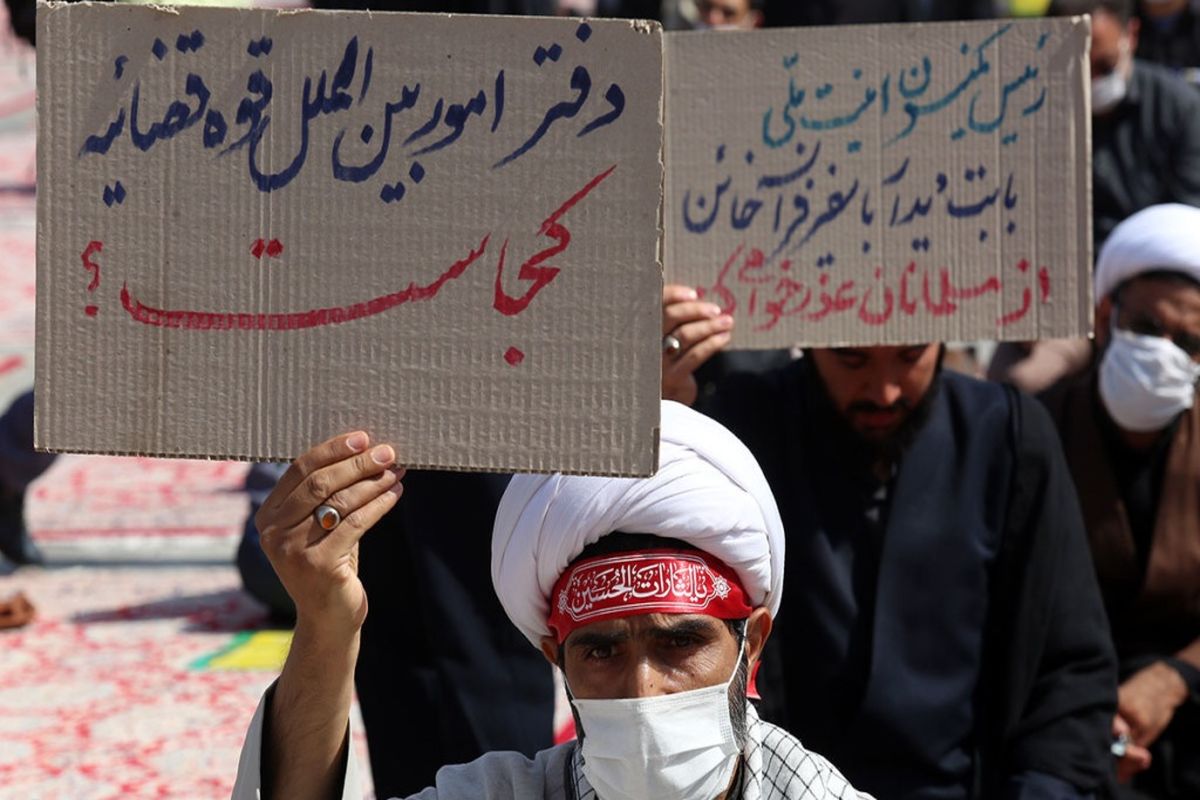 دفتر امور بین الملل قوه قضائیه
کجاست؟
رئیس کمیسیون امنیت ملّی
بابت دیدار با سفیر فرانسه خائن
از مسلمانان عذرخواهی کند
یالثارات الحسین